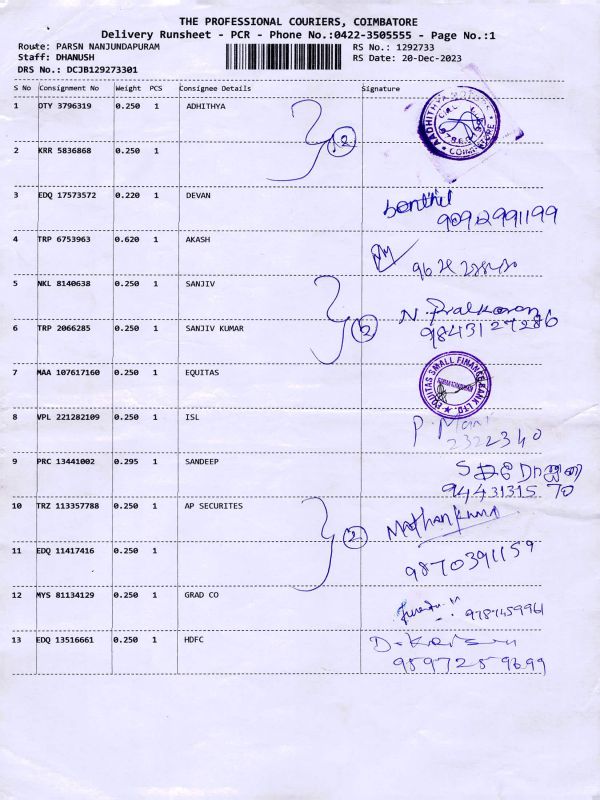 THE PROFESSIONAL COURIERS, COIMBATORE
Delivery Runsheet - PCR - Phone No.:0422-3505555 - Page No.:1
Route: PARSN NANJUNDAPURAM RS No.: 1292733
Staff: DHANUSH RS Date: 20-Dec-2023
DRS No.: DCJB129273301
S No Consignment No Weight PCS Consignee Details Signature
1 DTY 3796319 0.250 1 ADHITHYA
COIMBATORE
2 KRR 5836868 0.250 1
2
3 EDQ 17573572 0.220 1 DEVAN
9092991199
4 TRP 6753963 0.620 1 AKASH
5 NKL 8140638 0.250 1 SANJIV
6 TRP 2066285 0.250 1 SANJIV KUMAR
2
9843127286
7 MAA 107617160 0.250 1 EQUITAS
EQUITAS SMALL FINANCE BANK LTD
8 VPL 221282109 0.250 1 ISL
P. Mani
2322340
9 PRC 13441002 0.295 1 SANDEEP
9443131570
10 TRZ 113357788 0.250 1 AP SECURITES
Mathankumar
2
11 EDQ 11417416 0.250 1
9870391159
12 MYS 81134129 0.250 1 GRAD CO
9787459961
13 EDQ 13516661 0.250 1 HDFC
9597259699